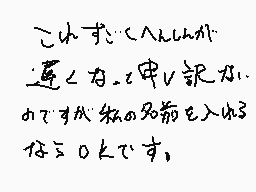 これすごくへんしんが
遅くなって申し訳ない
のですが私の名前を入れる
ならOKです。